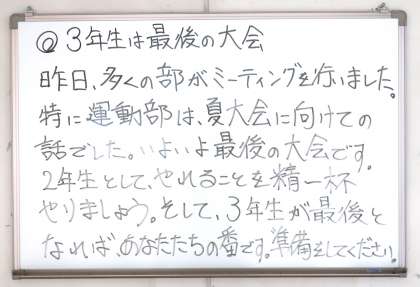 @3年生は最後の大会
昨日、多くの部がミーティングを行いました。
特に運動部は、夏大会に向けての
話でした。いよいよ最後の大会です。
2年生として、やれることを精一杯
やりましょう。そして、3年生が最後と
なれば、あなたたちの番です。準備をしてください。